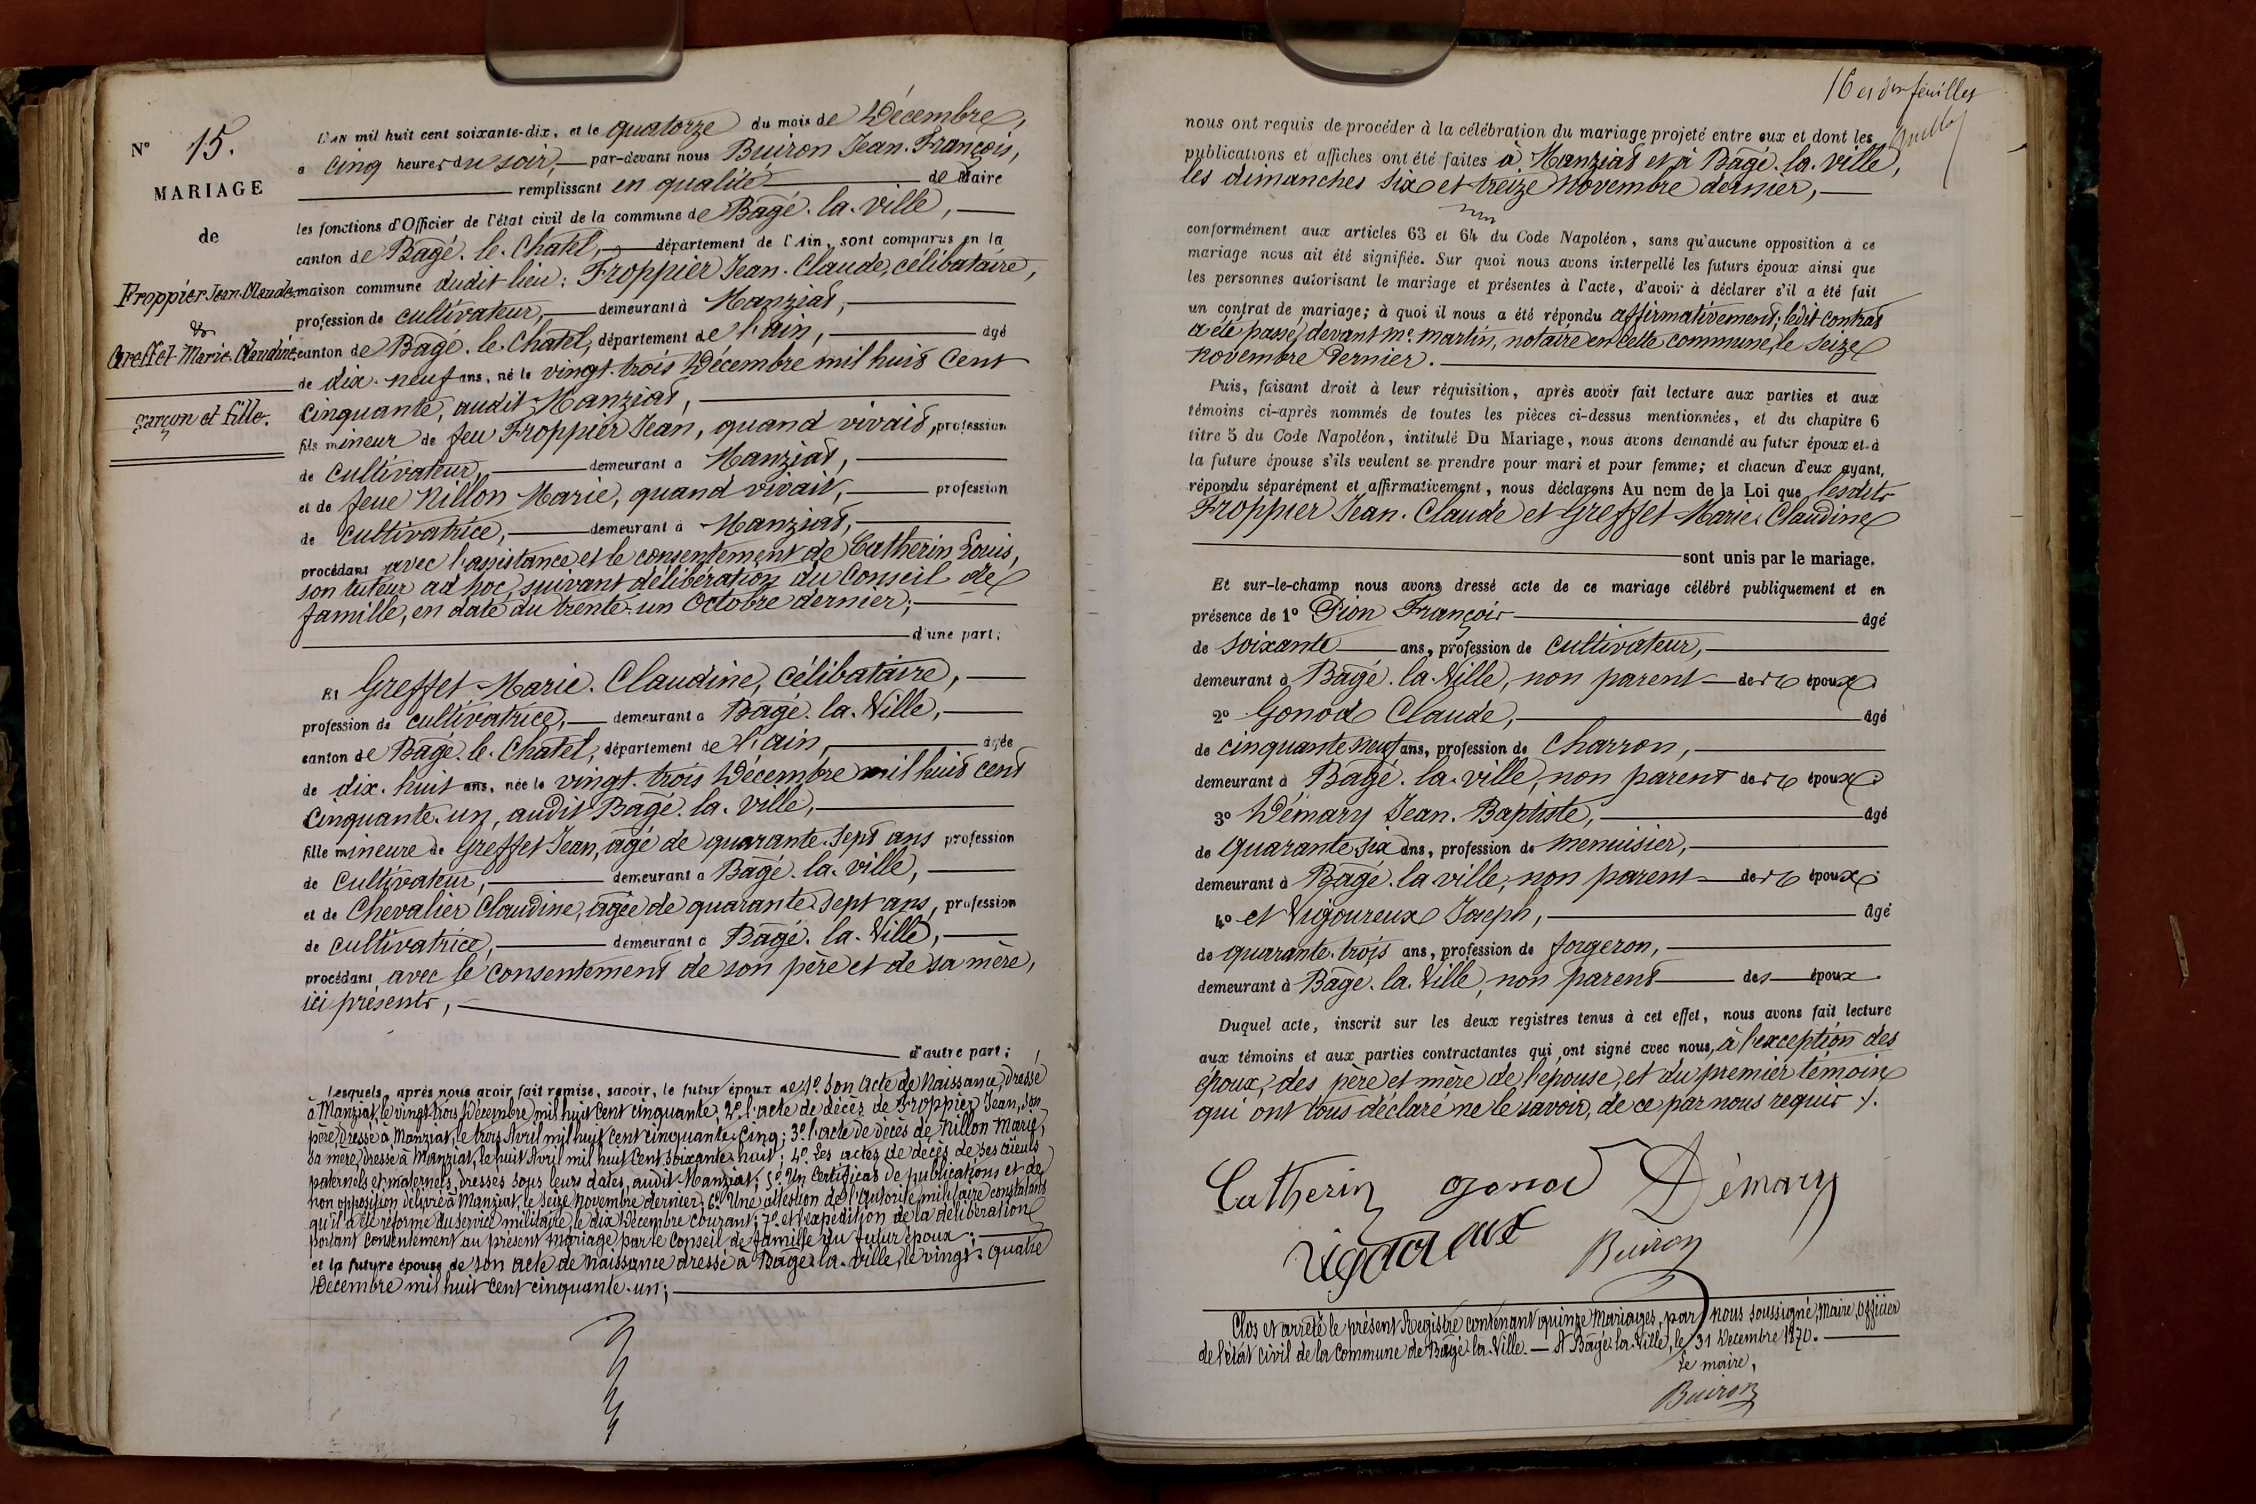 N° 15.
MARIAGE
de
Froppier Jean-Claude
&
Greffet Marie-Claudine
garçon et fille.
L'AN mil huit cent soixante-dix, et le quatorze du mois de Décembre,
a cinq heures du soir, par-devant nous Buiron Jean-François,
remplissant en qualité de Maire
les fonctions d'Officier de l'état civil de la commune de Bâgé-la-ville,
canton de Bâgé-le-Chatel, département de l'Ain, sont comparus en la
maison commune dudit lieu: Froppier Jean-Claude, célibataire,
profession de cultivateur, demeurant à Manziat,
canton de Bâgé-le-Chatel, département de l'ain, âgé
de dix-neuf ans, né le vingt-trois Décembre mil huit cent
cinquante, audit Manziat,
fils mineur de feu Froppier Jean, quand vivait, profession
de cultivateur, demeurant a Manziat,
et de feue Nillon Marie, quand vivait, profession
de cultivatrice, demeurant à Manziat,
procédant avec l'assistance et le consentement de Catherin Louis,
son tuteur ad hoc, suivant délibération du Conseil de
famille, en date du trente-un Octobre dernier;
d'une part;
Et Greffet Marie-Claudine, célibataire,
profession de cultivatrice, demeurant a Bâgé-la-Ville,
canton de Bâgé-le-Chatel, département de l'ain, âgée
de dix-huit ans, née le vingt-trois Décembre mil huit cent
cinquante-un, audit Bâgé-la-ville,
fille mineure de Greffet Jean, âgé de quarante-sept ans profession
de cultivateur, demeurant a Bâgé-la-ville,
et de Chevalier Claudine, âgée de quarante-sept ans, profession
de cultivatrice, demeurant à Bâgé-la-Ville,
procédant avec le consentement de son père et de sa mère,
ici présents,
d'autre part;
Lesquels, après nous avoir fait remise, savoir, le futur époux de 1° son acte de Naissance, dressé
à Manziat, le vingt-trois Décembre mil huit cent cinquante; 2° l'acte de décès de Froppier Jean, son
père, dressé à Manziat, le trois Avril mil huit cent cinquante-cinq; 3° l'acte de décès de Nillon Marie,
sa mère, dressé à Manziat, le huit Avril mil huit cent soixante-huit; 4° Les actes de décès de ses aïeuls
paternels et maternels, dressés sous leurs dates, audit Manziat; 5° Un certificat de publications et de
non opposition délivré à Manziat, le seize Novembre dernier; 6° Une attestion de l'autorité militaire constatant
qu'il a été réformé du service militaire, le dix Décembre courant; 7° et l'expédition de la délibération
portant consentement au présent mariage par le Conseil de famille du futur époux;
et la future épouse de son acte de naissance dressé à Bâgé-la-ville, le vingt-quatre
Décembre mil huit cent cinquante-un;
16 et der feuillet
nous ont requis de procéder à la célébration du mariage projeté entre eux et dont les
publications et affiches ont été faites à Manziat et à Bâgé-la-ville,
les dimanches six et treize Novembre dernier,
conformément aux articles 63 et 64 du Code Napoléon, sans qu'aucune opposition à ce
mariage nous ait été signifiée. Sur quoi nous avons interpellé les futurs époux ainsi que
les personnes autorisant le mariage et présentes à l'acte, d'avoir à déclarer s'il a été fait
un contrat de mariage; à quoi il nous a été répondu affirmativement; ledit contrat
a été passé devant Me. Martin, notaire en cette commune, le seize
Novembre dernier.
Puis, faisant droit à leur réquisition, après avoir fait lecture aux parties et aux
témoins ci-après nommés de toutes les pièces ci-dessus mentionnées, et du chapitre 6
titre 5 du Code Napoléon, intitulé Du Mariage, nous avons demandé au futur époux et à
la future épouse s'ils veulent se prendre pour mari et pour femme; et chacun d'eux ayant,
répondu séparément et affirmativement, nous déclarons Au nom de la Loi que lesdits
Froppier Jean-Claude et Greffet Marie-Claudine
sont unis par le mariage.
Et sur-le-champ nous avons dressé acte de ce mariage célébré publiquement et en
présence de 1° Pion François âgé
de soixante ans, profession de cultivateur,
demeurant à Bâgé-la-Ville, non parent des époux
2° Gonod Claude, âgé
de cinquante-neuf ans, profession de charron,
demeurant à Bâgé-la-ville, non parent des époux
3° Démary Jean-Baptiste, âgé
de quarante-six ans, profession de menuisier,
demeurant à Bâgé-la-ville, non parent des époux
4° et Vigoureux Joseph, âgé
de quarante-trois ans, profession de forgeron,
demeurant à Bâgé-la-Ville, non parent des époux
Duquel acte, inscrit sur les deux registres tenus à cet effet, nous avons fait lecture
aux témoins et aux parties contractantes qui ont signé avec nous, à l'exception des
époux, des père et mère de l'épouse, et du premier témoin
qui ont tous déclaré ne le savoir, de ce par nous requis
Catherin gonod Démary
Buiron
Clos et arrêté le présent Registre contenant quinze Mariages, par nous soussigné, Maire, officier
de l'état civil de la commune de Bâgé-la-Ville. — A Bâgé-la-Ville, le 31 Décembre 1870.
Le maire,
Buiron